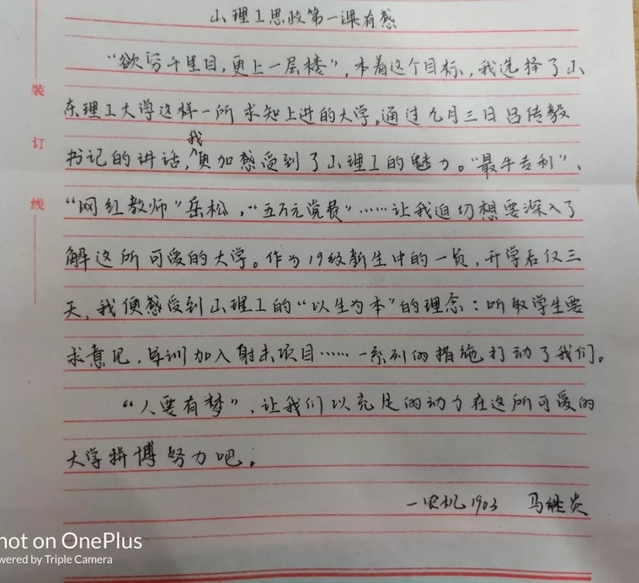 山理工思政第一课有感
“欲穷千里目,更上一层楼”,本着这个目标,我选择了山
东理工大学这样一所求知上进的大学。通过九月三日吕传毅
书记的讲话,我更加感受到了山理工的魅力。“最牛专利”、
“网红教师”岳松,“五万元党费”……让我迫切想要深入了
解这所可爱的大学。作为19级新生中的一员,开学后仅三
天,我便感受到山理工的“以生为本”的理念:听取学生要
求意见,军训加入射击项目……一系列的措施打动了我们。
“人要有梦”,让我们以充足的动力在这所可爱的
大学拼博努力吧。
—农机1903 马继炎
装
订
线
hot on OnePlus
owered by Triple Camera